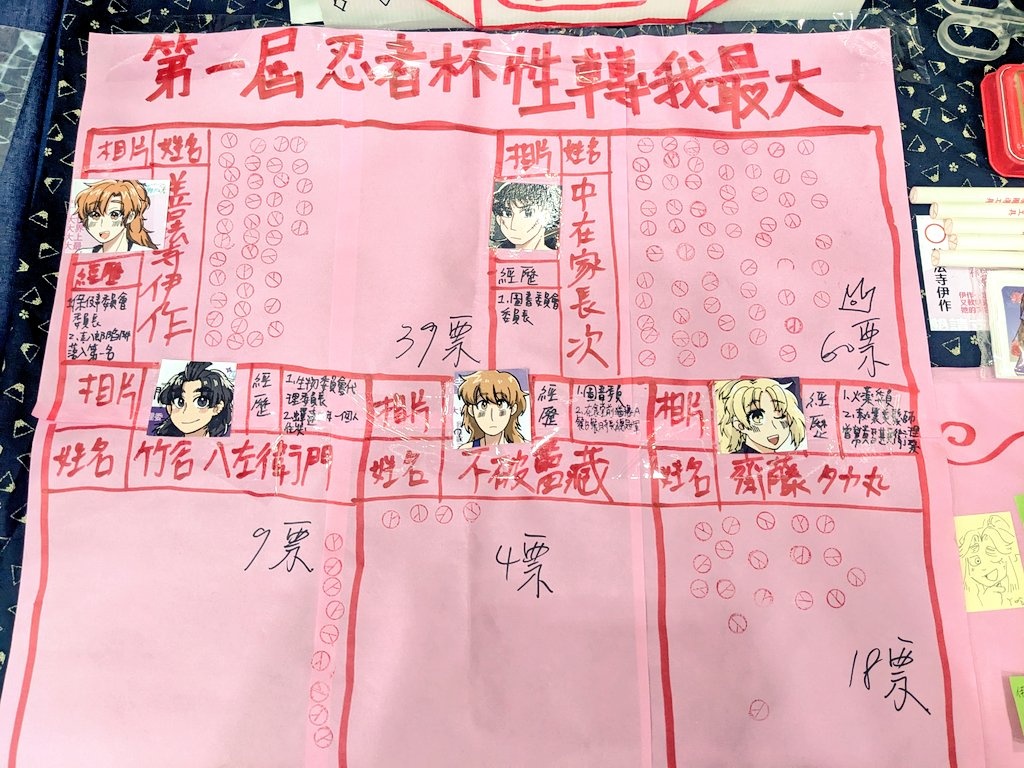 第一屆忍者杯性轉我最大
相片
姓名
善法寺伊作
經歷
1.保健委員會
委員長
落入第一名
39票
相片
姓名
中在家長次
經歷
1.圖書委員會
委員長
60票
相片
經歷
1.生物委員會代
理委員長
姓名
竹谷八左衛門
9票
相片
經歷
1.圖書委員
姓名
不破雷藏
4票
相片
經歷
1.火藥委員
姓名
齋藤タカ丸
18票
法寺伊作